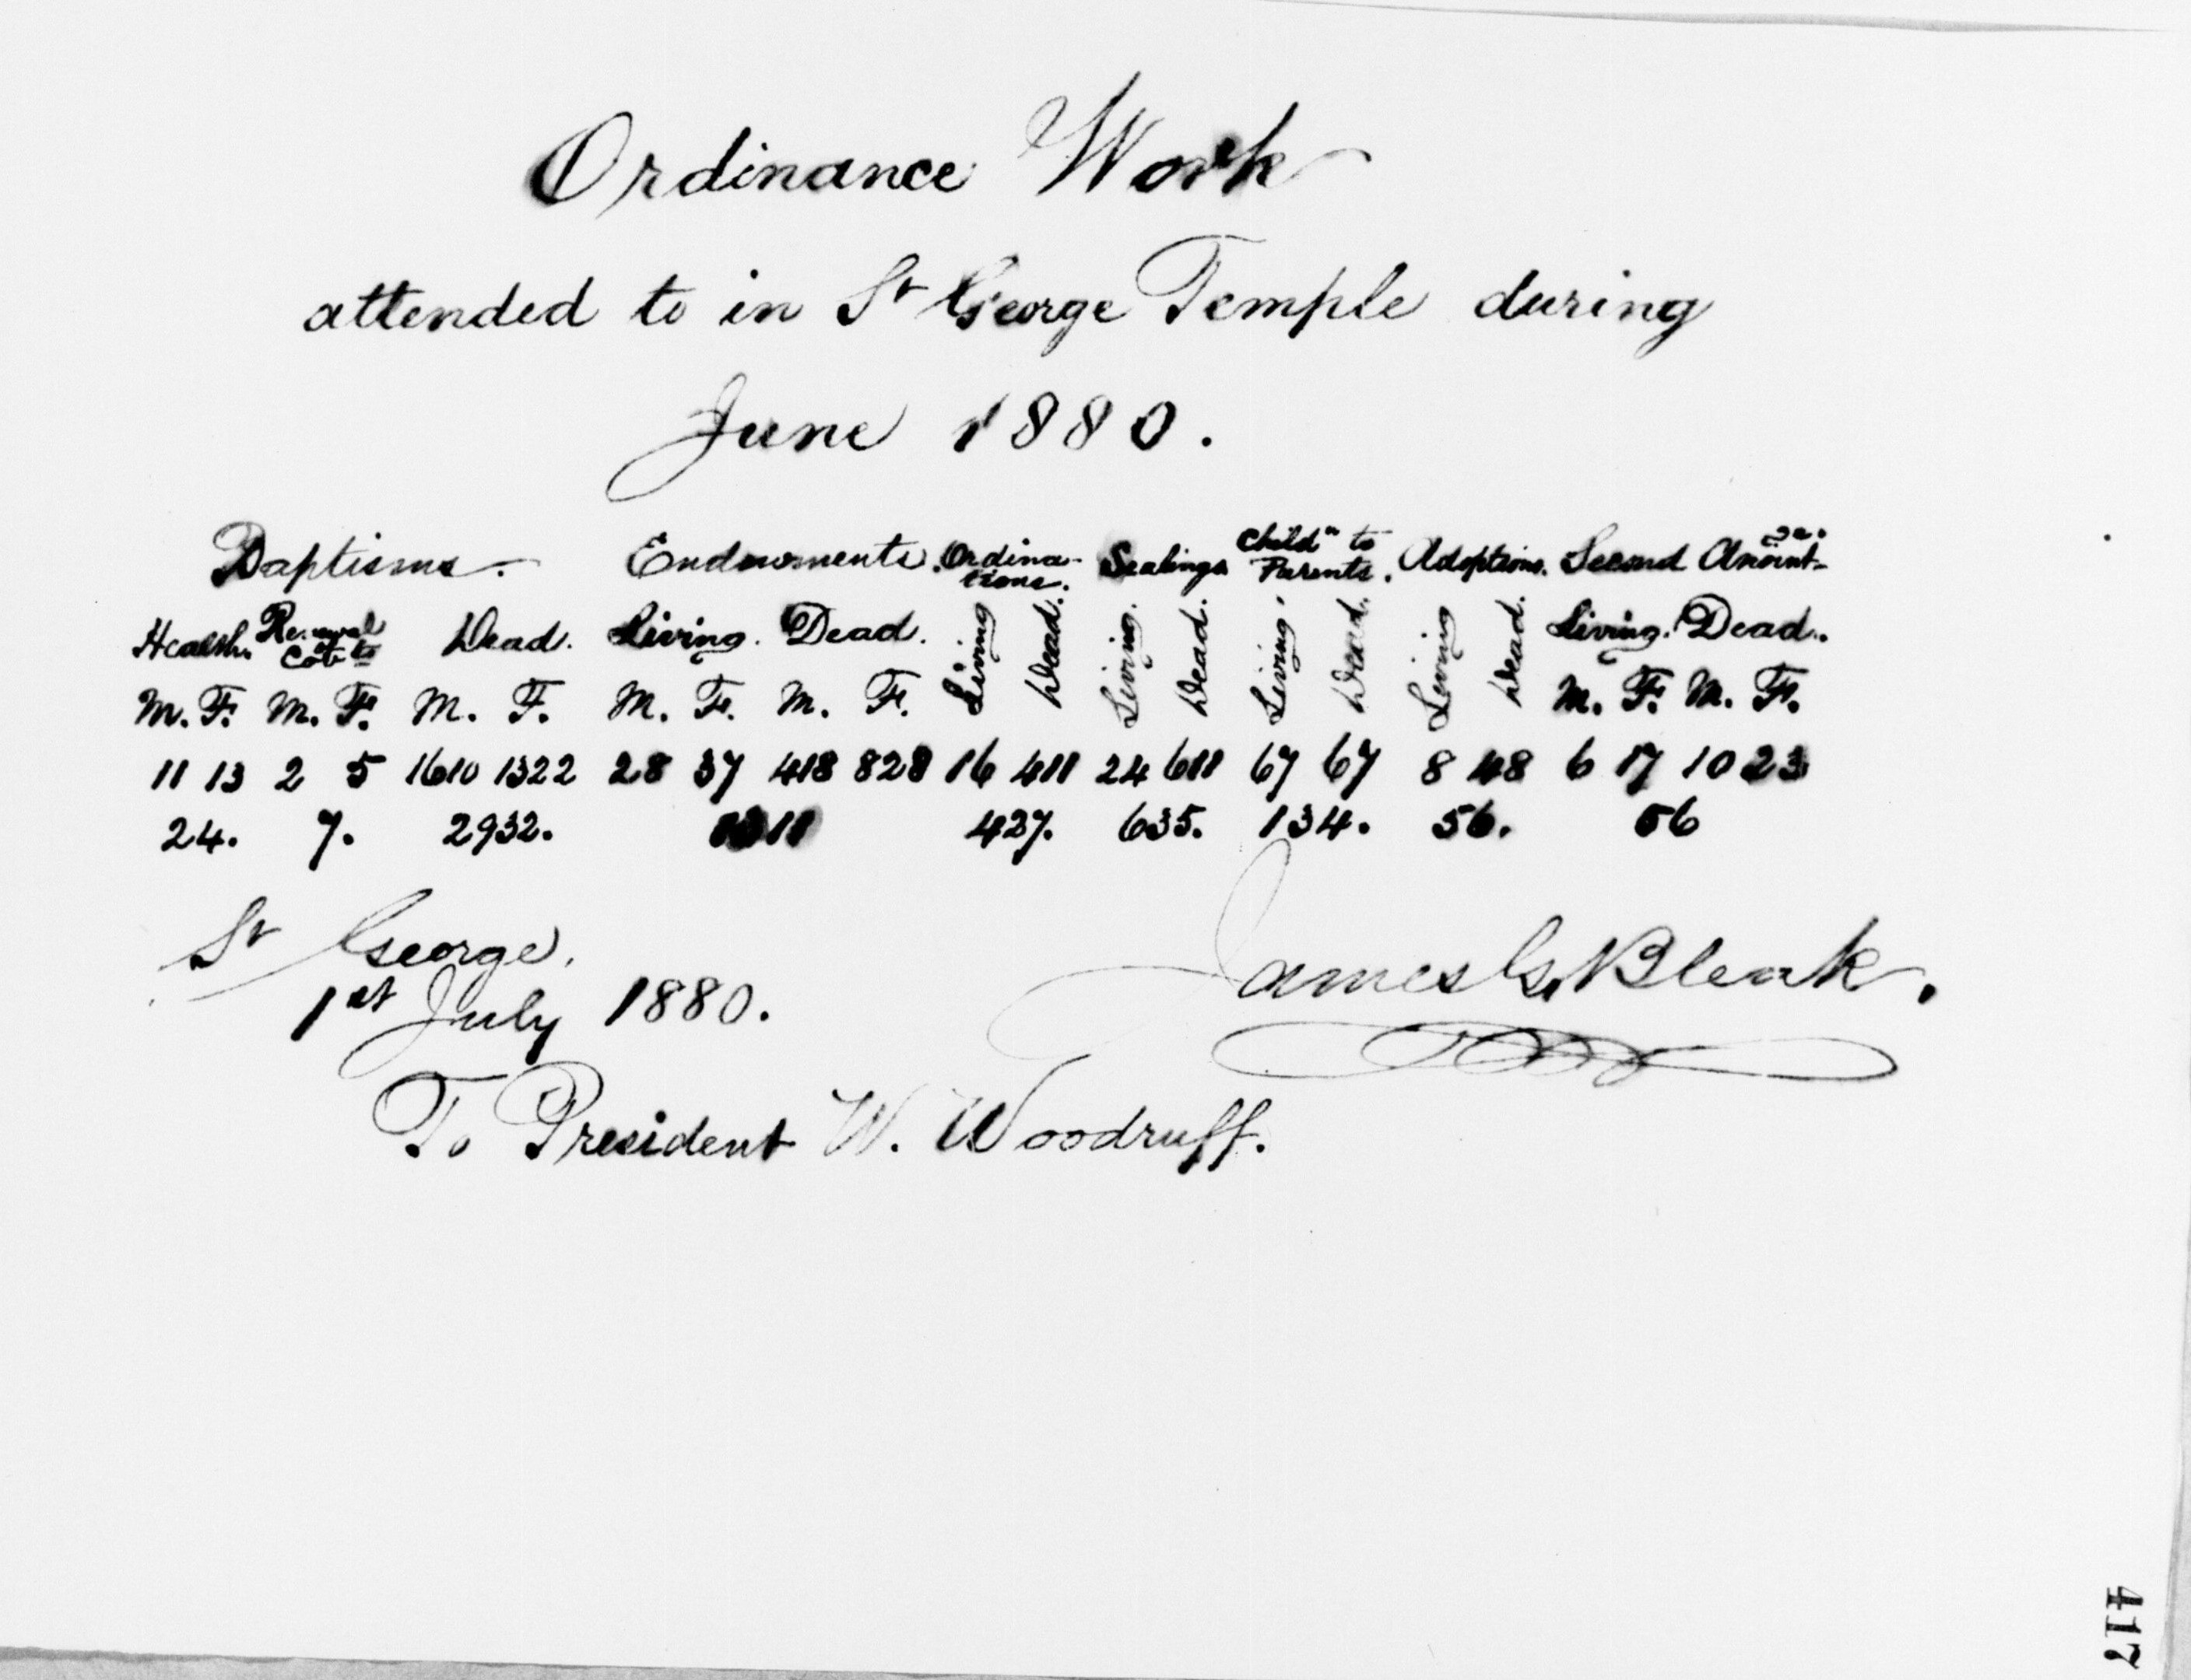 Ordinance Work
attended to in St George Temple during
June 1880.
Baptisms. Endowments. Ordina- Sealings. Child" to Adoptions. Second Anoint-
tions. Parents. gs.
Health. Renewal of Cov'ts Dead. Living. Dead. Living Dead. Living. Dead. Living. Dead. Living Dead. Living. Dead.
M. F. M. F. M. F. M. F. M. F. M. F. M. F.
11 13 2 5 1610 1322 28 37 418 828 16 411 24 611 67 67 8 48 6 17 10 23
24. 7. 2932. 1311 427. 635. 134. 56. 56
St George.
1st July 1880.
James G. Bleak.
To President W. Woodruff.
417